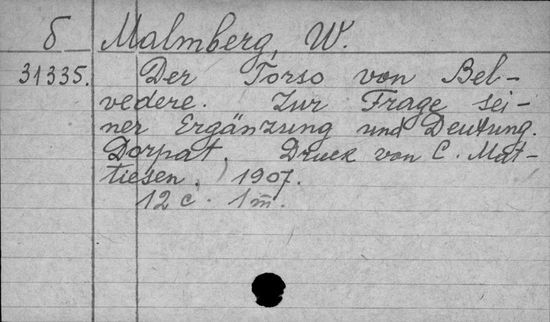 б Malmberg, W.
31335. Der Torso von Bel-
vedere. Zur Frage sei-
ner Ergänzung und Deutung.
Dorpat, Druck von C. Mat-
tiesen, 1907.
12 c. 1 m.